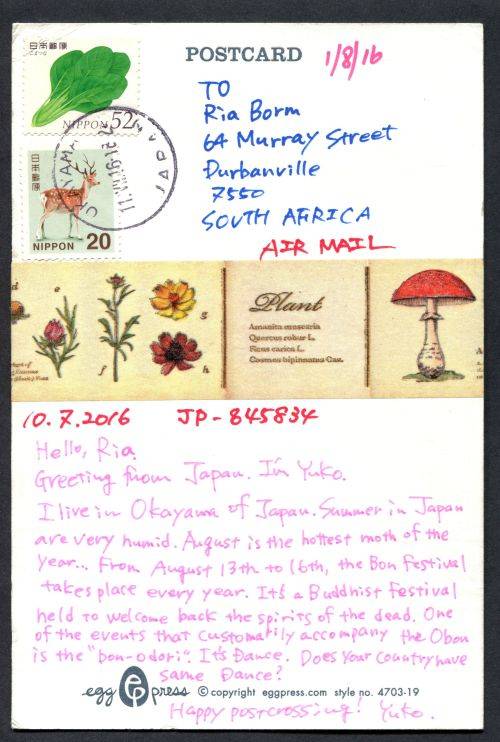 POSTCARD
1/8/16
日本郵便
NIPPON 52
日本郵便
NIPPON 20
JAPAN
TO
Ria Borm
64 Murray Street
Durbanville
7550
SOUTH AFRICA
AIR MAIL
d e
f
g
h
Plant
Amanita muscaria
Quercus robur L.
Ficus carica L.
Cosmos bipinnatus Cav.
10.7.2016 JP-845834
Hello, Ria.
Greeting from Japan. I'm Yuko.
I live in Okayama of Japan. Summer in Japan
are very humid. August is the hottest moth of the
year... From August 13th to 16th, the Bon Festival
takes place every year. It's a Buddhist festival
held to welcome back the spirits of the dead. One
of the events that customarily accompany the Obon
is the "bon-odori". It's Dance. Does Your country have
same Dance?
egg press © copyright eggpress.com style no. 4703-19
Happy postcrossing! Yuko.